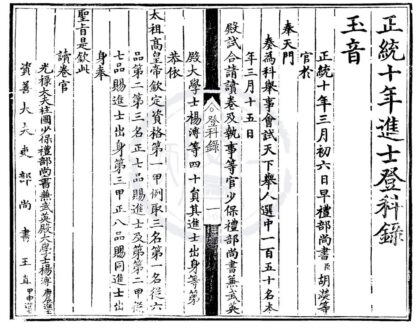 正統十年進士登科錄
玉音
正統十年三月初六日早禮部尚書臣胡濙等
官於
奉天門
奏為科舉事會試天下舉人選中一百五十名本
年三月十五日
殿試合請讀卷及執事等官少保禮部尚書兼武英
殿大學士楊溥等四十員其進士出身等第
恭依
太祖高皇帝欽定資格第一甲例取三名第一名從六
品第二第三名正七品賜進士及第第二甲從
七品賜進士出身第三甲正八品賜同進士出
身奉
聖旨是欽此
讀卷官
光祿大夫柱國少保禮部尚書兼武英殿大學士楊溥
資善大夫吏部尚書王直
登科錄
一